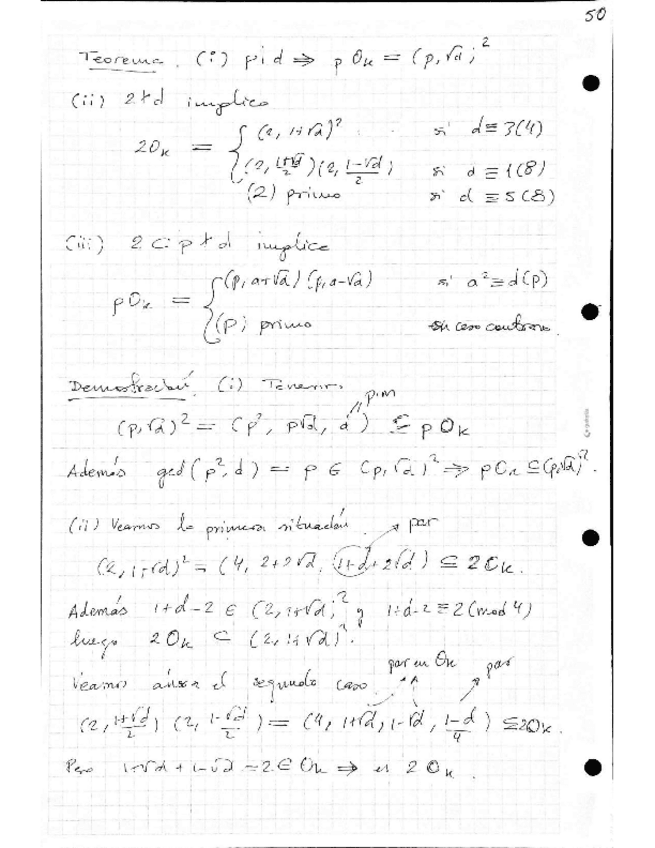 50
Teorema. (i) p|d ⇒ pO_K = (p, √d)²
(ii) 2∤d implica
2O_K = { (2, 1+√d)² si d≡3(4)
(2, 1+√d/2)(2, 1-√d/2) si d≡1(8)
(2) primo si d≡5(8)
(iii) 2 < p ∤ d implica
pO_K = { (p, a+√d)(p, a-√d) si a²≡d(p)
(p) primo en caso contrario.
Demostración. (i) Tenemos
p·m
(p, √d)² = (p², p√d, d) ⊆ pO_K
Además gcd(p², d) = p ∈ (p, √d)² ⇒ pO_K ⊆ (p, √d)².
(ii) Veamos la primera situación. par
(2, 1+√d)² = (4, 2+2√d, 1+d+2√d) ⊆ 2O_K.
Además 1+d-2 ∈ (2, 1+√d)² y 1+d-2≡2(mod 4)
luego 2O_K ⊂ (2, 1+√d)².
par en O_K par
Veamos ahora el segundo caso.
(2, 1+√d/2)(2, 1-√d/2) = (4, 1+√d, 1-√d, 1-d/4) ⊆ 2O_K.
Pero 1+√d + 1-√d = 2 ∈ O_K ⇒ 2O_K.